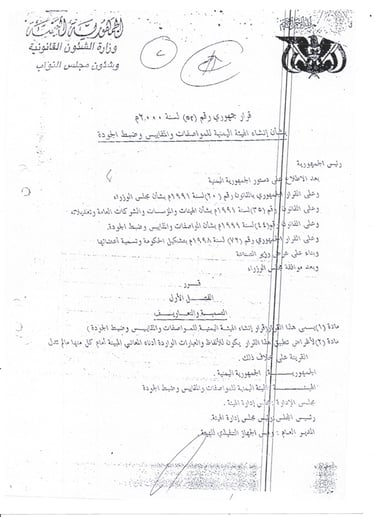 الجمهورية اليمنية
وزارة الشئون القانونية
وشئون مجلس النواب
قرار جمهوري رقم (٥٢) لسنة ٢٠٠٠م
بشأن إنشاء الهيئة اليمنية للمواصفات والمقاييس وضبط الجودة
رئيس الجمهورية
بعد الاطلاع على دستور الجمهورية اليمنية
وعلى القرار الجمهوري بالقانون رقم (٢٠) لسنة ١٩٩١م بشأن مجلس الوزراء
وعلى القانون رقم (٣٥) لسنة ١٩٩١م بشأن الهيئات والمؤسسات والشركات العامة وتعديلاته
وعلى القانون رقم (٤٤) لسنة ١٩٩٩م بشأن المواصفات والمقاييس وضبط الجودة.
وعلى القرار الجمهوري رقم (٧٢) لسنة ١٩٩٨م بتشكيل الحكومة وتسمية أعضائها
وبناء على عرض وزير الصناعة
وبعد موافقة مجلس الوزراء
قـرر
الفصل الأول
التسمية والتعاريف
مادة (١) يسمى هذا القرار (قرار إنشاء الهيئة اليمنية للمواصفات والمقاييس وضبط الجودة)
مادة (٢) لأغراض تطبيق هذا القرار يكون للألفاظ والعبارات الواردة أدناه المعاني المبينة أمام كل منها مالم تدل
القرينة على خلاف ذلك.
الجمهورية : الجمهورية اليمنية.
الهيئة : الهيئة اليمنية للمواصفات والمقاييس وضبط الجودة
مجلس الإدارة : مجلس إدارة الهيئة.
رئيس المجلس : رئيس مجلس إدارة الهيئة.
المدير العام : رئيس الجهاز التنفيذي للهيئة.